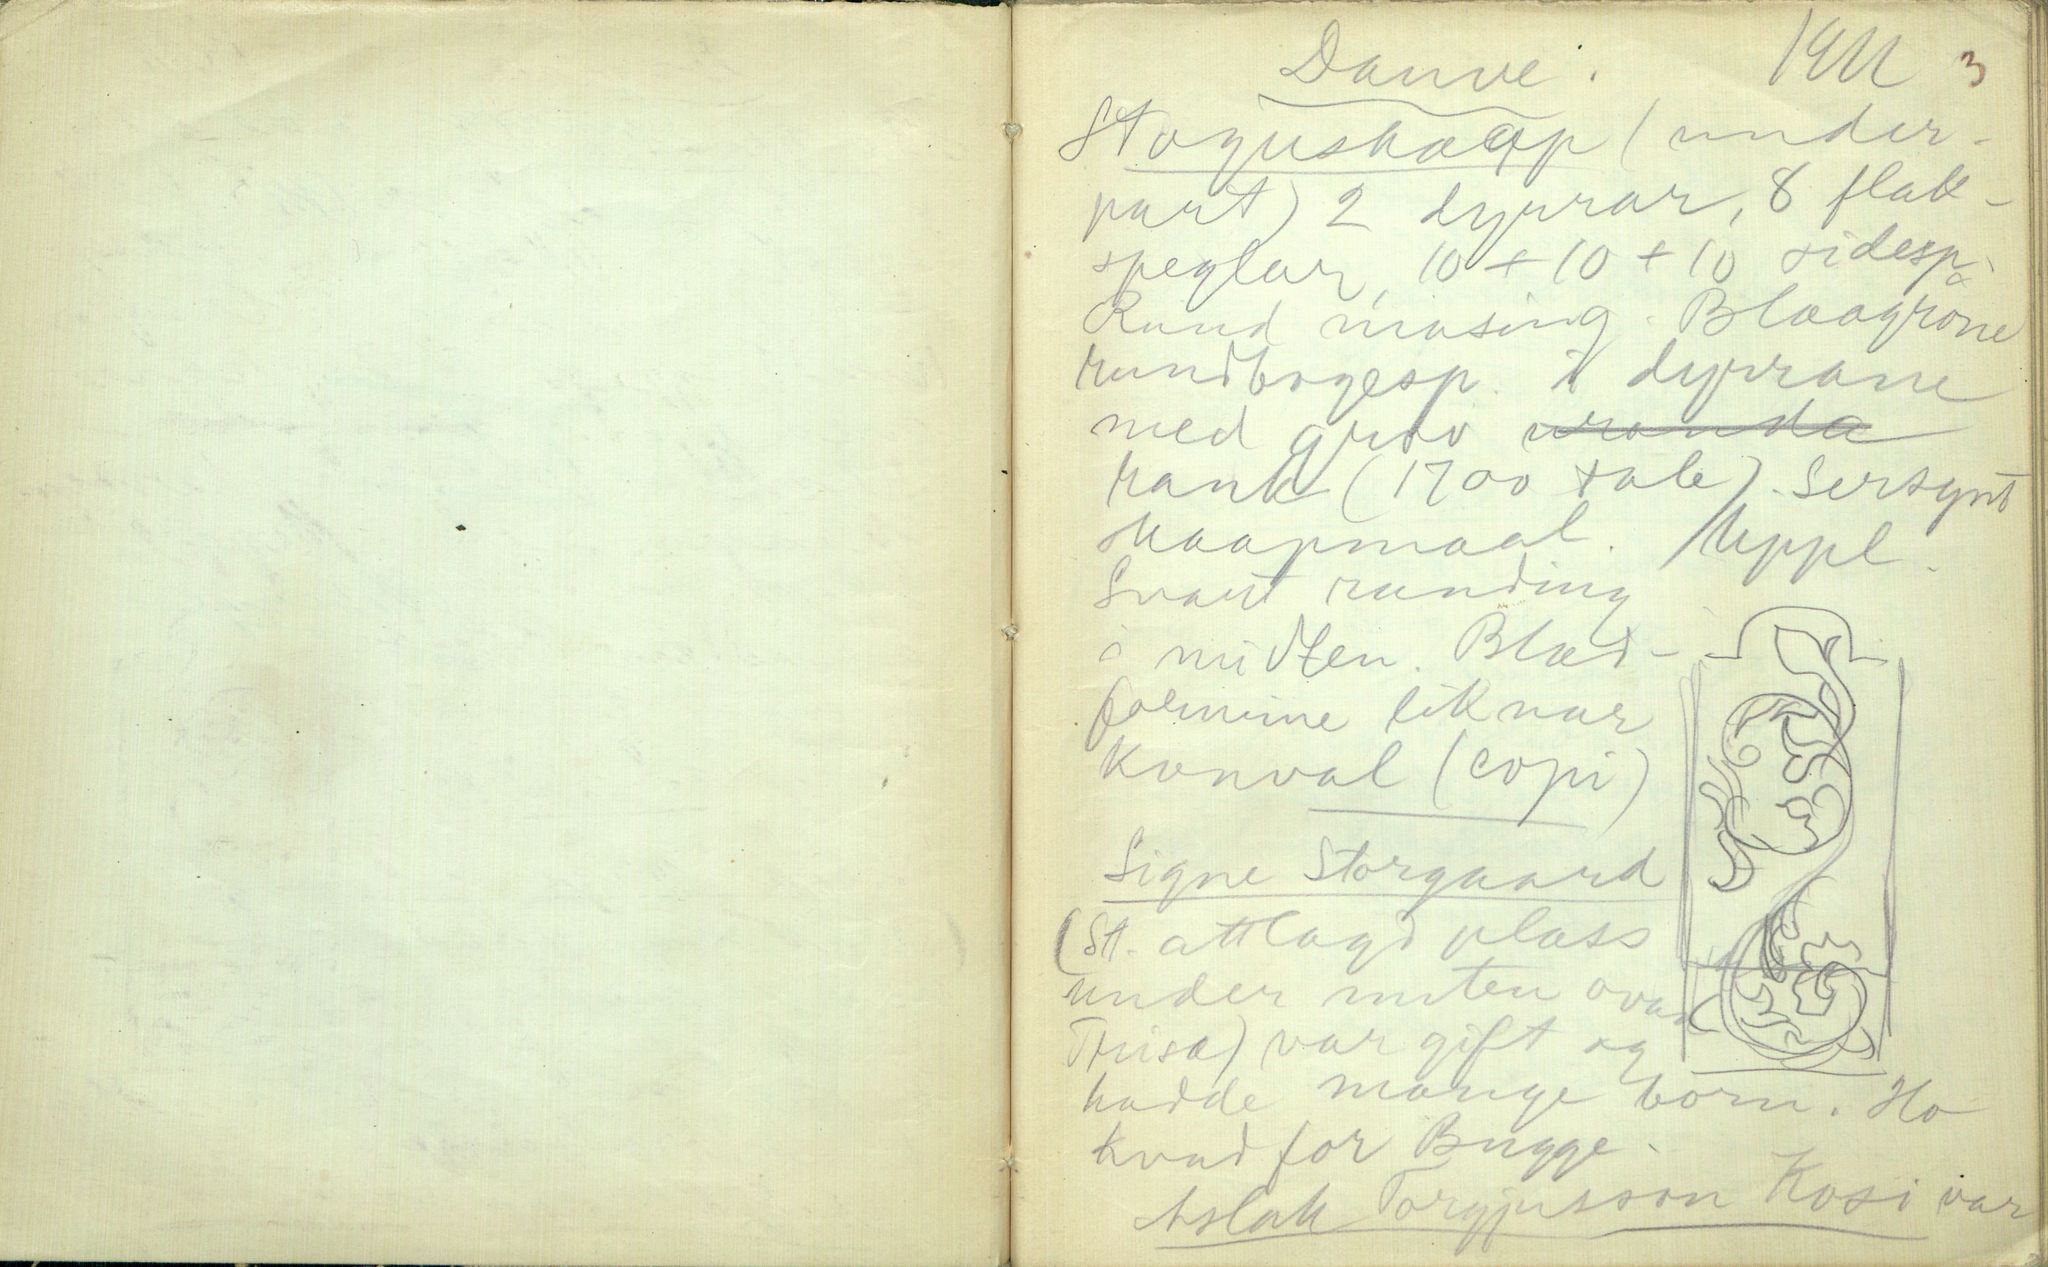 Dauve. 1911 3
Stoguskaap (under-
part) 2 dyrrar, 8 flat-
speglar, 10 + 10 + 10 sidesp.
Rund masing. Blaagröne
rundbogesp. i dyrrane
med grov
rank (1700 tale). Sersynt
skaapmaal. Uppl.
Svart runding
i midten. Blad-
formine liknar
Konval (copi)
Signe Storgaard
(St. attlagd plass
under nuten ovan
Trisæ) var gift og
hadde mange born. Ho
kvad for Bugge.
Aslak Torgjusson Kosi var